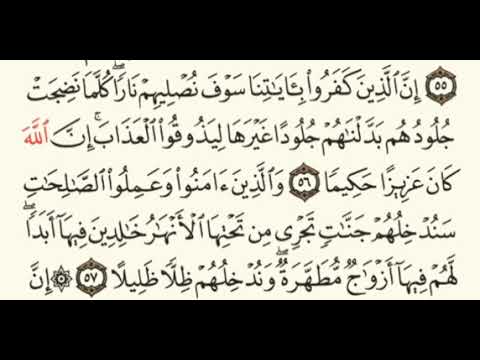 ٥٥ إِنَّ ٱلَّذِينَ كَفَرُوا۟ بِـَٔايَـٰتِنَا سَوْفَ نُصْلِيهِمْ نَارًاۖ كُلَّمَا نَضِجَتْ
جُلُودُهُم بَدَّلْنَـٰهُمْ جُلُودًا غَيْرَهَا لِيَذُوقُوا۟ ٱلْعَذَابَۗ إِنَّ ٱللَّهَ
كَانَ عَزِيزًا حَكِيمًا ٥٦ وَٱلَّذِينَ ءَامَنُوا۟ وَعَمِلُوا۟ ٱلصَّـٰلِحَـٰتِ
سَنُدْخِلُهُمْ جَنَّـٰتٍ تَجْرِى مِن تَحْتِهَا ٱلْأَنْهَـٰرُ خَـٰلِدِينَ فِيهَآ أَبَدًاۖ
لَّهُمْ فِيهَآ أَزْوَٰجٌ مُّطَهَّرَةٌۖ وَنُدْخِلُهُمْ ظِلًّا ظَلِيلًا ٥٧ ۞ إِنَّ